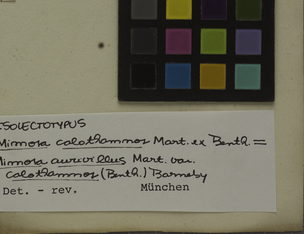 ISOLECTOTYPUS
Mimosa calothamnos Mart. ex Benth. =
Mimosa aurivillus Mart. var.
calothamnos (Benth.) Barneby
Det. - rev. München